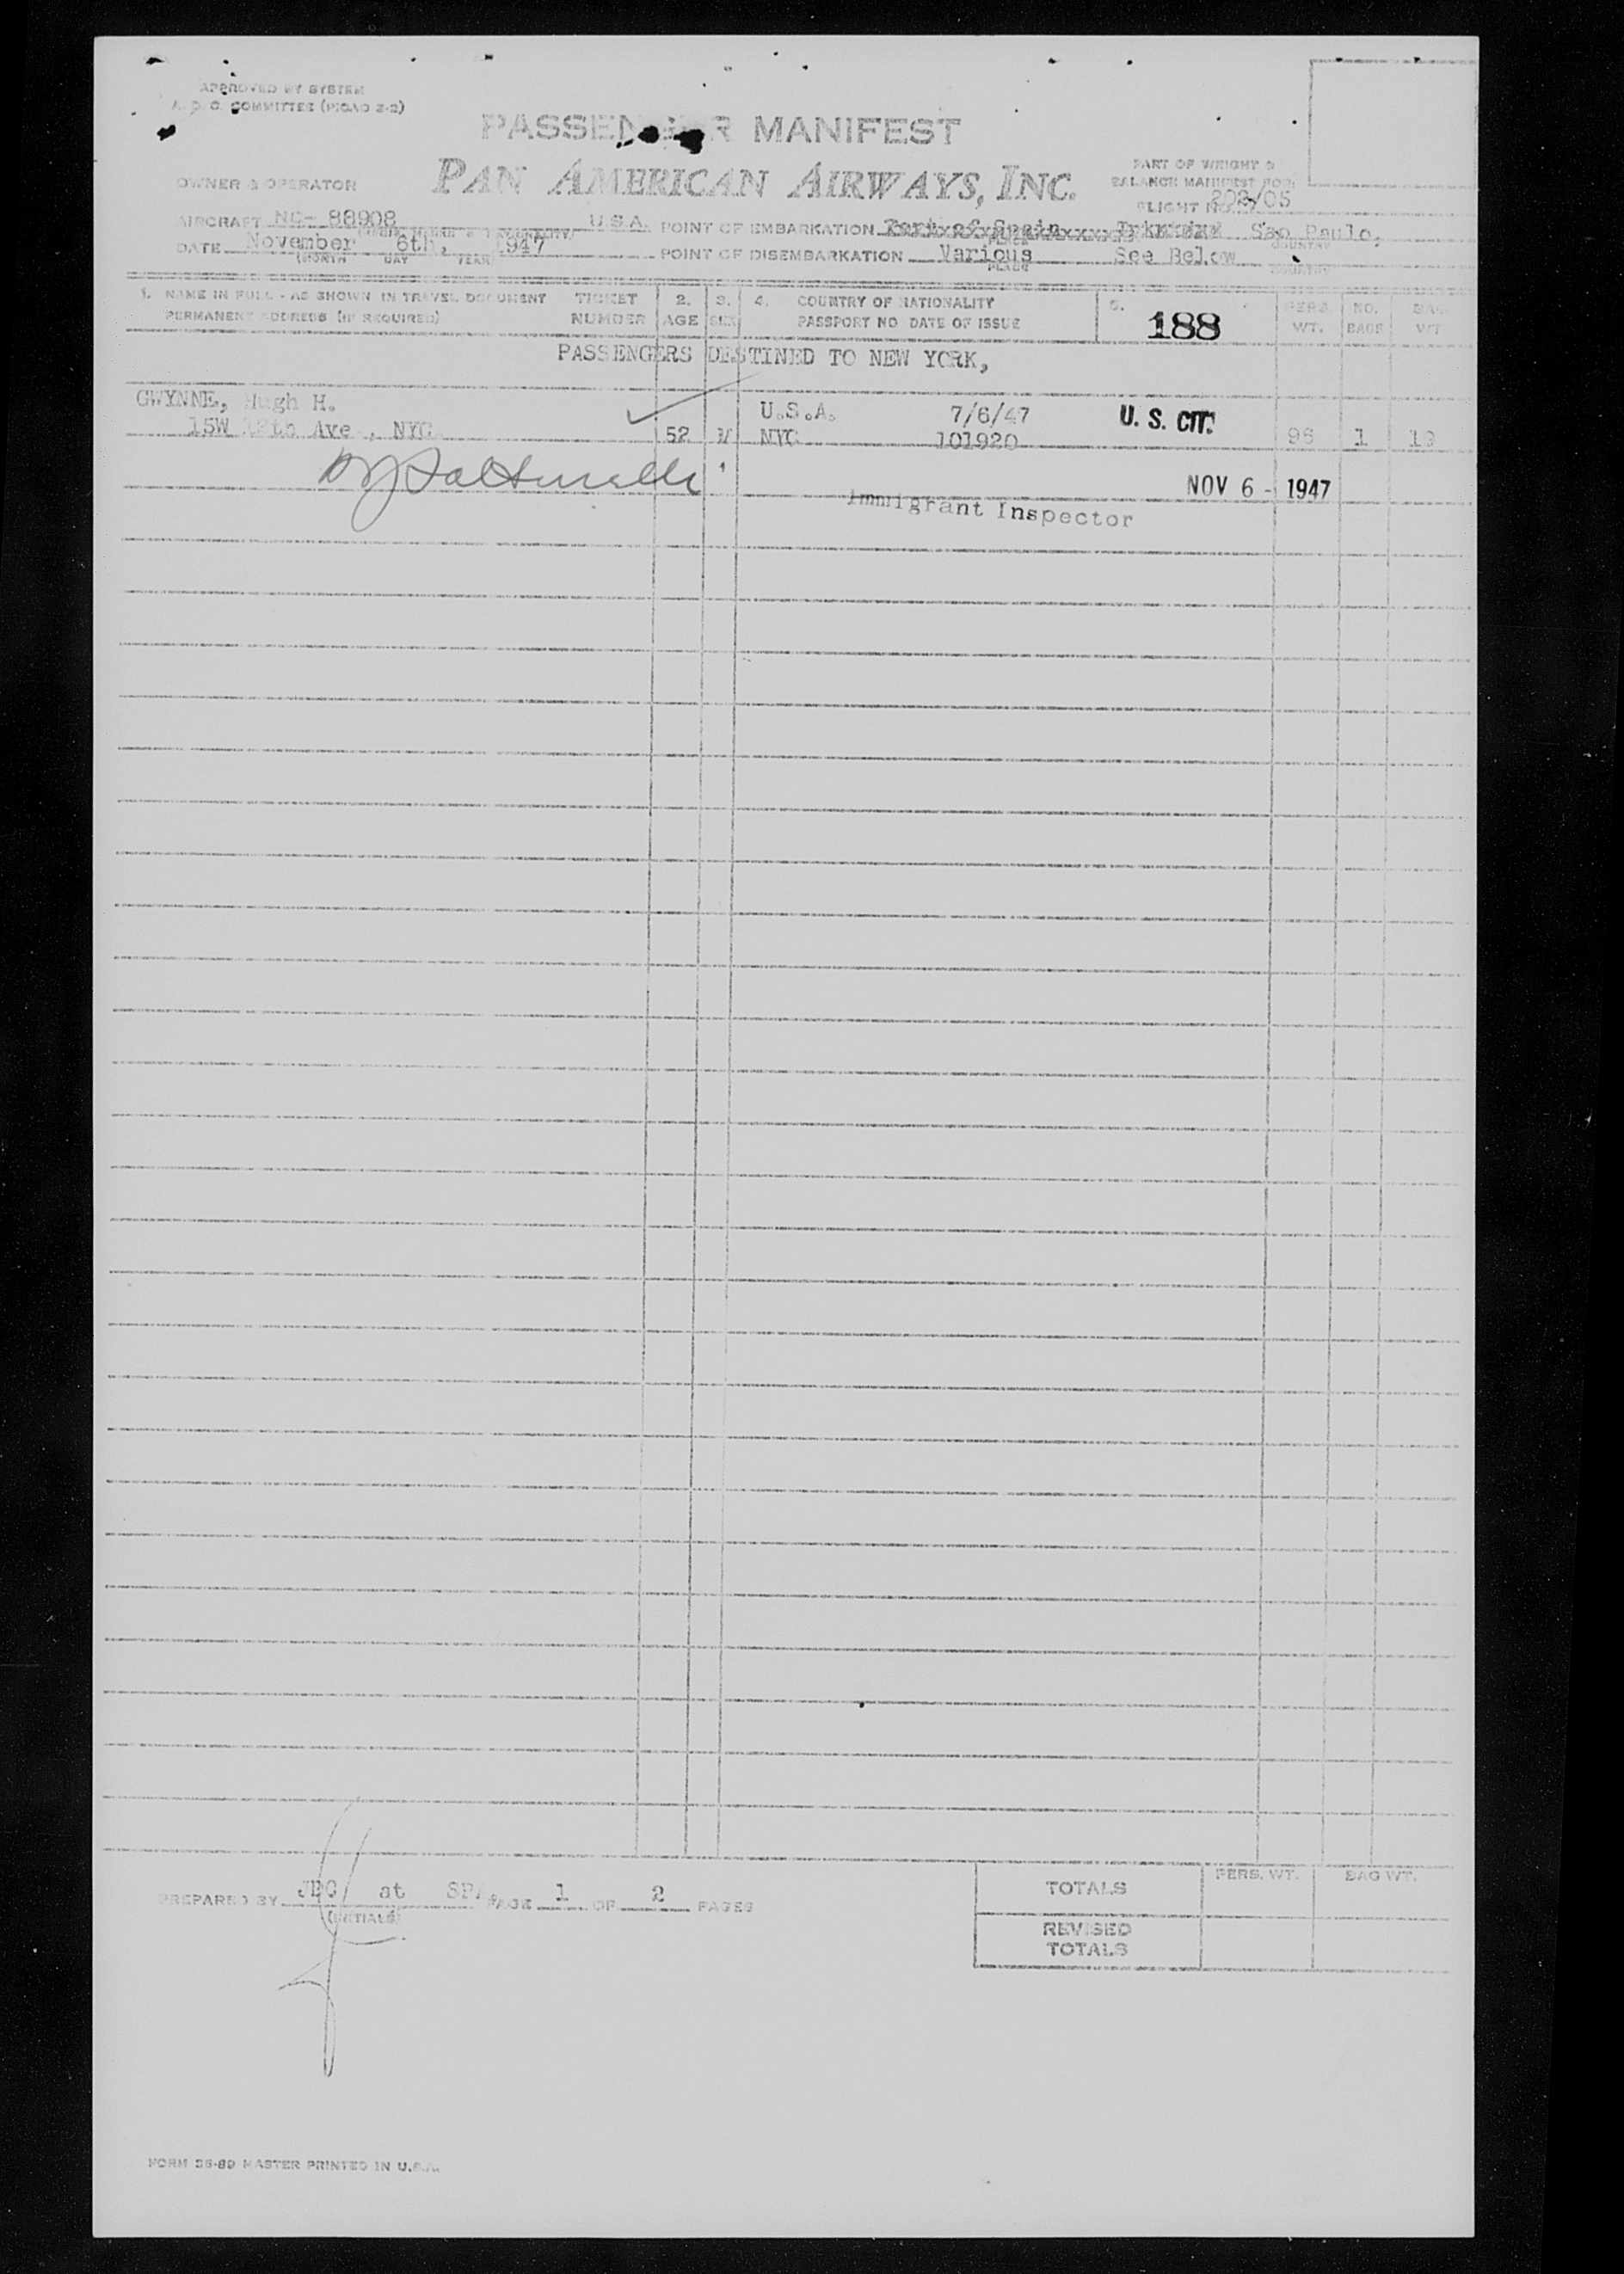 APPROVED BY SYSTEM
COMMITTEE (PICAO 2-2)
PASSENGER MANIFEST
PAN AMERICAN AIRWAYS, INC.
PART OF WEIGHT &
BALANCE MANIFEST FOR
FLIGHT NO. 202/05
OWNER & OPERATOR
AIRCRAFT NC- 88908 U.S.A. POINT OF EMBARKATION Port of Spain Trinidad Sao Paulo,
PLACE COUNTRY
DATE November 6th, 1947 POINT OF DISEMBARKATION Various See Below
(MONTH DAY YEAR PLACE COUNTRY
1. NAME IN FULL - AS SHOWN IN TRAVEL DOCUMENT TICKET 2. 3. 4. COUNTRY OF NATIONALITY 5. PERS NO. BAG
PERMANENT ADDRESS (IF REQUIRED) NUMBER AGE SEX PASSPORT NO DATE OF ISSUE 188 WT. BAGS WT
PASSENGERS DESTINED TO NEW YORK,
GWYNNE, Hugh H. U.S.A. 7/6/47 U. S. CIT.
15W 12th Ave , NYC 52 M NYC 101920 1
NOV 6 - 1947
Immigrant Inspector
PREPARED BY at PAGE 1 OF 2 PAGES
(INITIALS)
TOTALS PERS. WT. BAG WT.
REVISED
TOTALS
FORM MASTER PRINTED IN U.S.A.